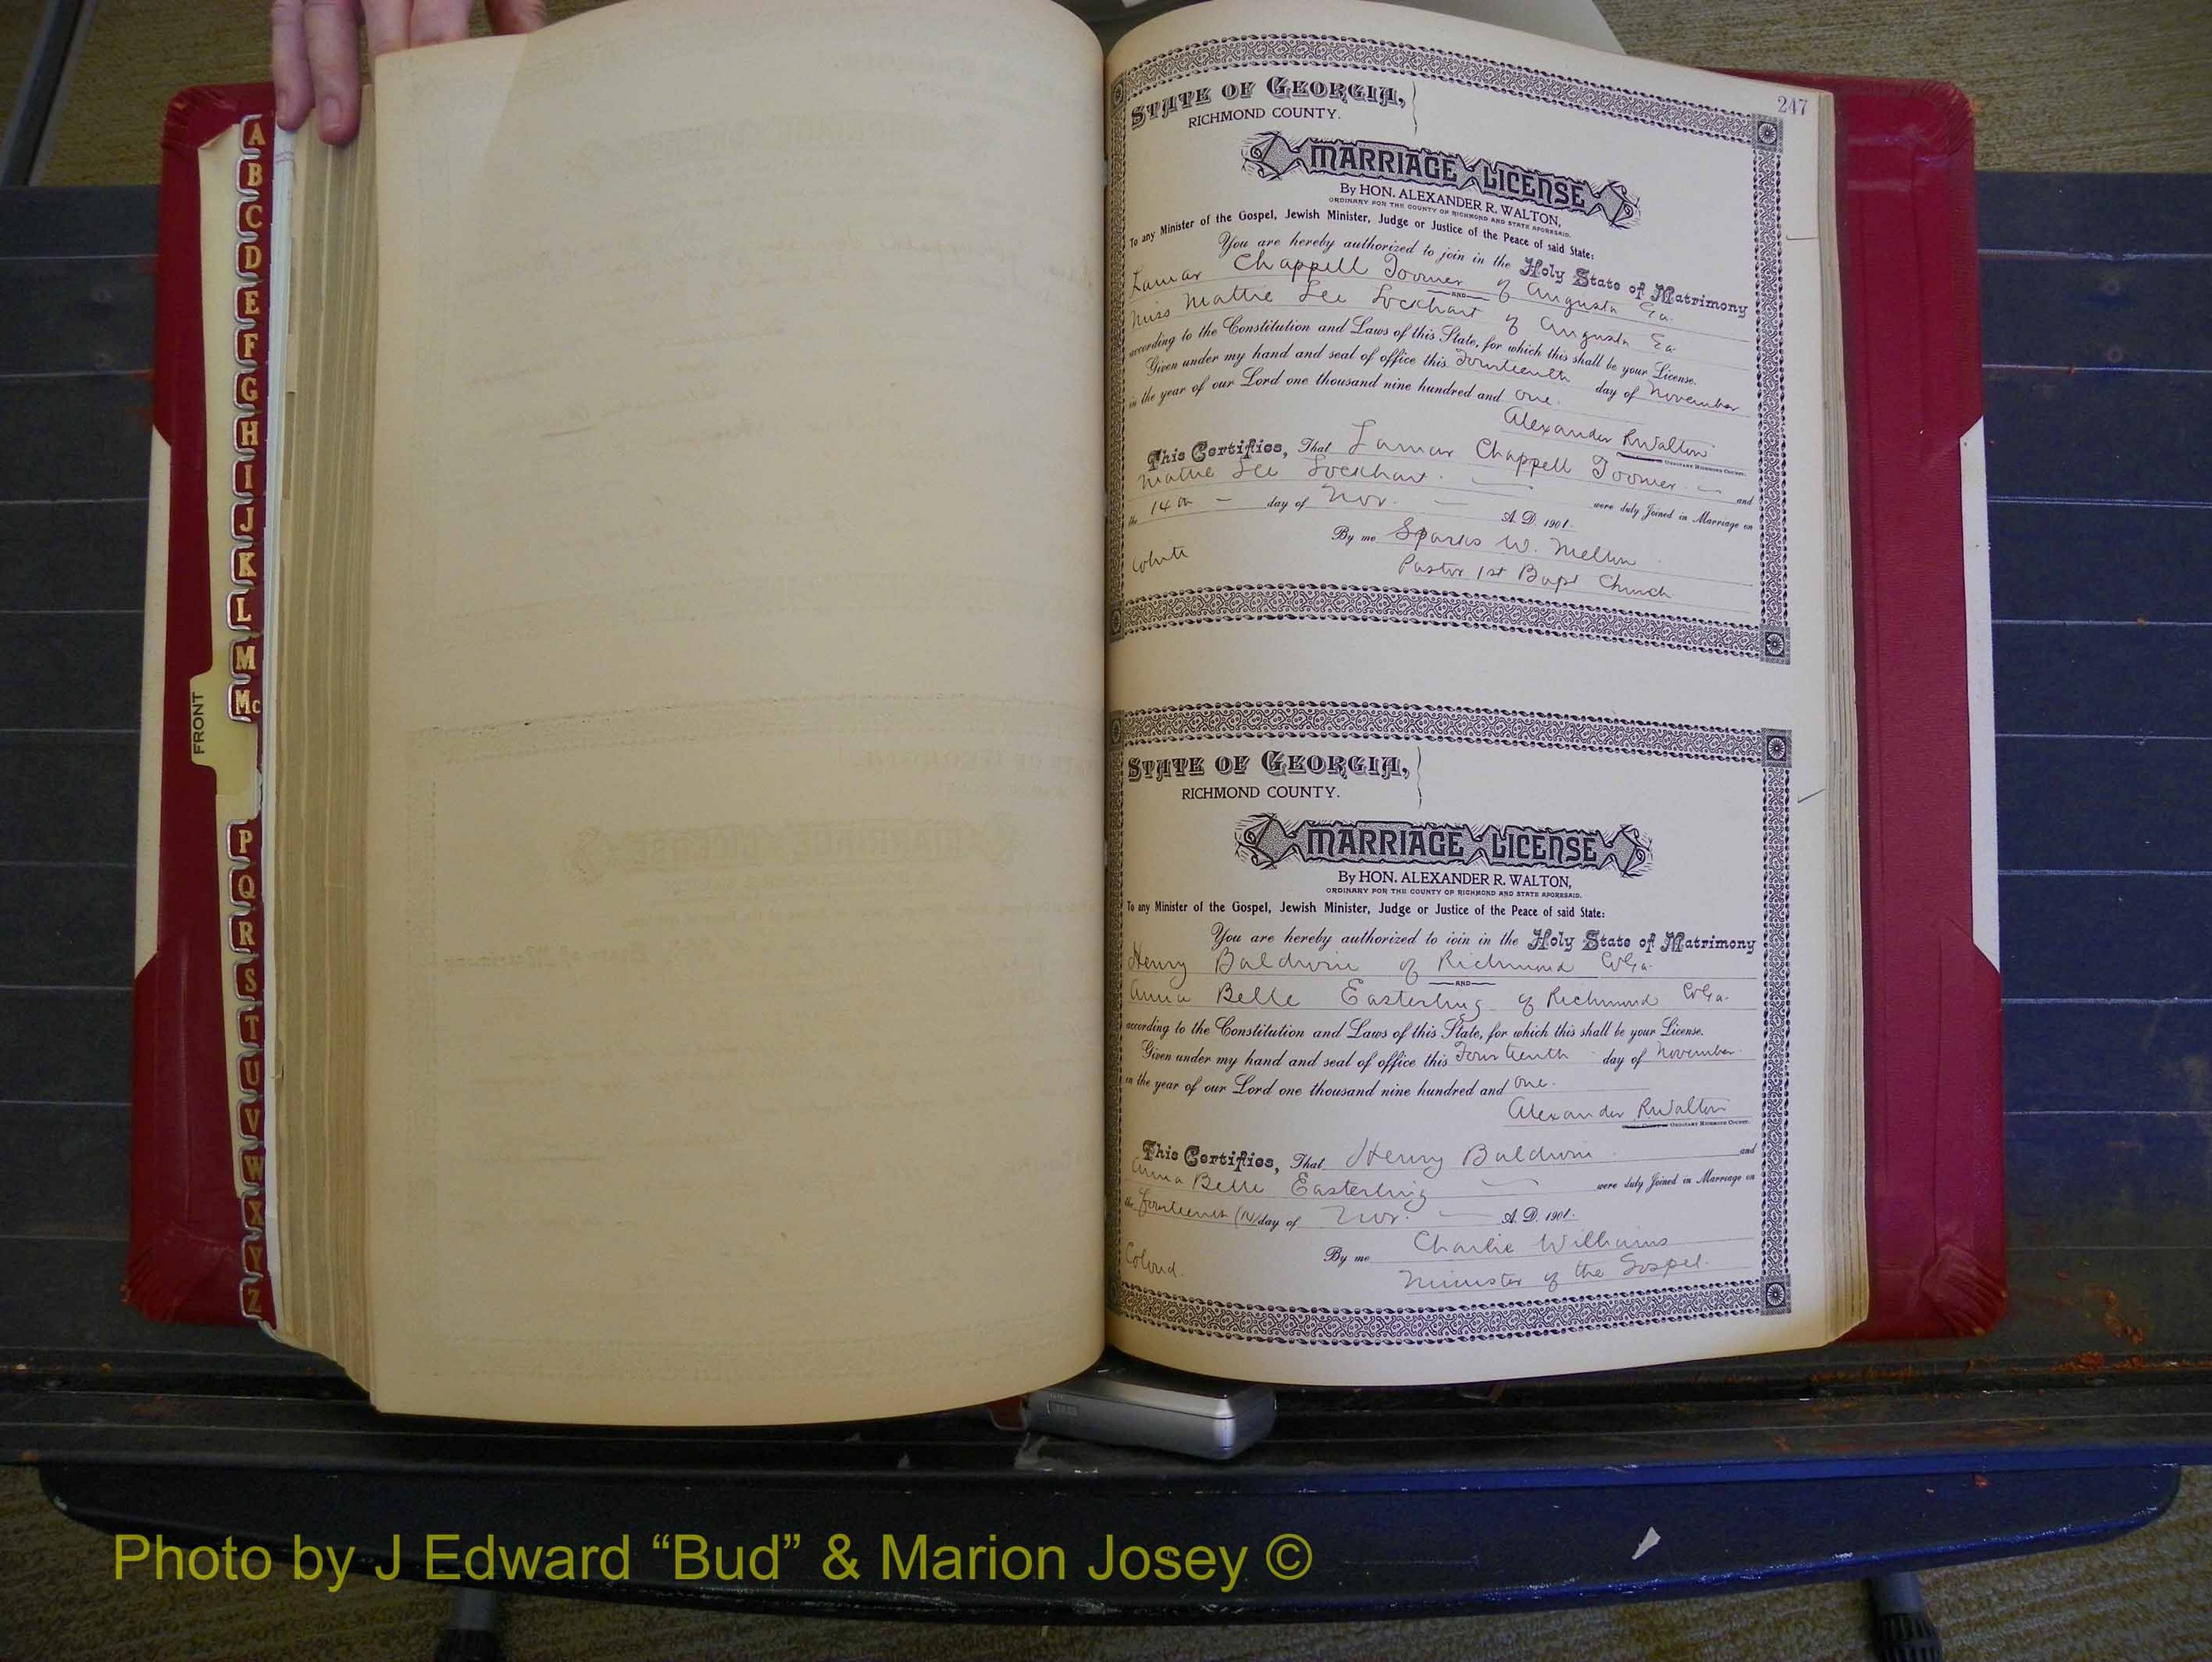 A
B
C
D
E
F
G
H
I
J
K
L
M
Mc
FRONT
P
Q
R
S
T
U
V
W
X
Y
Z
247
STATE OF GEORGIA,
RICHMOND COUNTY.
MARRIAGE LICENSE
By HON. ALEXANDER R. WALTON,
ORDINARY FOR THE COUNTY OF RICHMOND AND STATE AFORESAID.
To any Minister of the Gospel, Jewish Minister, Judge or Justice of the Peace of said State:
You are hereby authorized to join in the Holy State of Matrimony
Lamar Chappell Toomer of Augusta Ga.
AND
Miss Mattie Lee Lockhart of Augusta Ga
according to the Constitution and Laws of this State, for which this shall be your License.
Given under my hand and seal of office this Fourteenth day of November
in the year of our Lord one thousand nine hundred and one.
Alexander R Walton
ORDINARY RICHMOND COUNTY.
This Certifies, That Lamar Chappell Toomer and
Mattie Lee Lockhart. were duly Joined in Marriage on
the 14th day of Nov. A. D. 1901.
By me Sparks W. Melton
White Pastor 1st Bapt Church
STATE OF GEORGIA,
RICHMOND COUNTY.
MARRIAGE LICENSE
By HON. ALEXANDER R. WALTON,
ORDINARY FOR THE COUNTY OF RICHMOND AND STATE AFORESAID.
To any Minister of the Gospel, Jewish Minister, Judge or Justice of the Peace of said State:
You are hereby authorized to join in the Holy State of Matrimony
Henry Baldwin of Richmond Co Ga.
AND
Anna Belle Easterling of Richmond Co Ga.
according to the Constitution and Laws of this State, for which this shall be your License.
Given under my hand and seal of office this Fourteenth day of November
in the year of our Lord one thousand nine hundred and one.
Alexander R Walton
ORDINARY RICHMOND COUNTY.
This Certifies, That Henry Baldwin and
Anna Belle Easterling were duly Joined in Marriage on
the fourteenth (14) day of Nov. A. D. 1901.
By me Charlie Williams
Colored. Minister of the Gospel.
Photo by J Edward “Bud” & Marion Josey ©